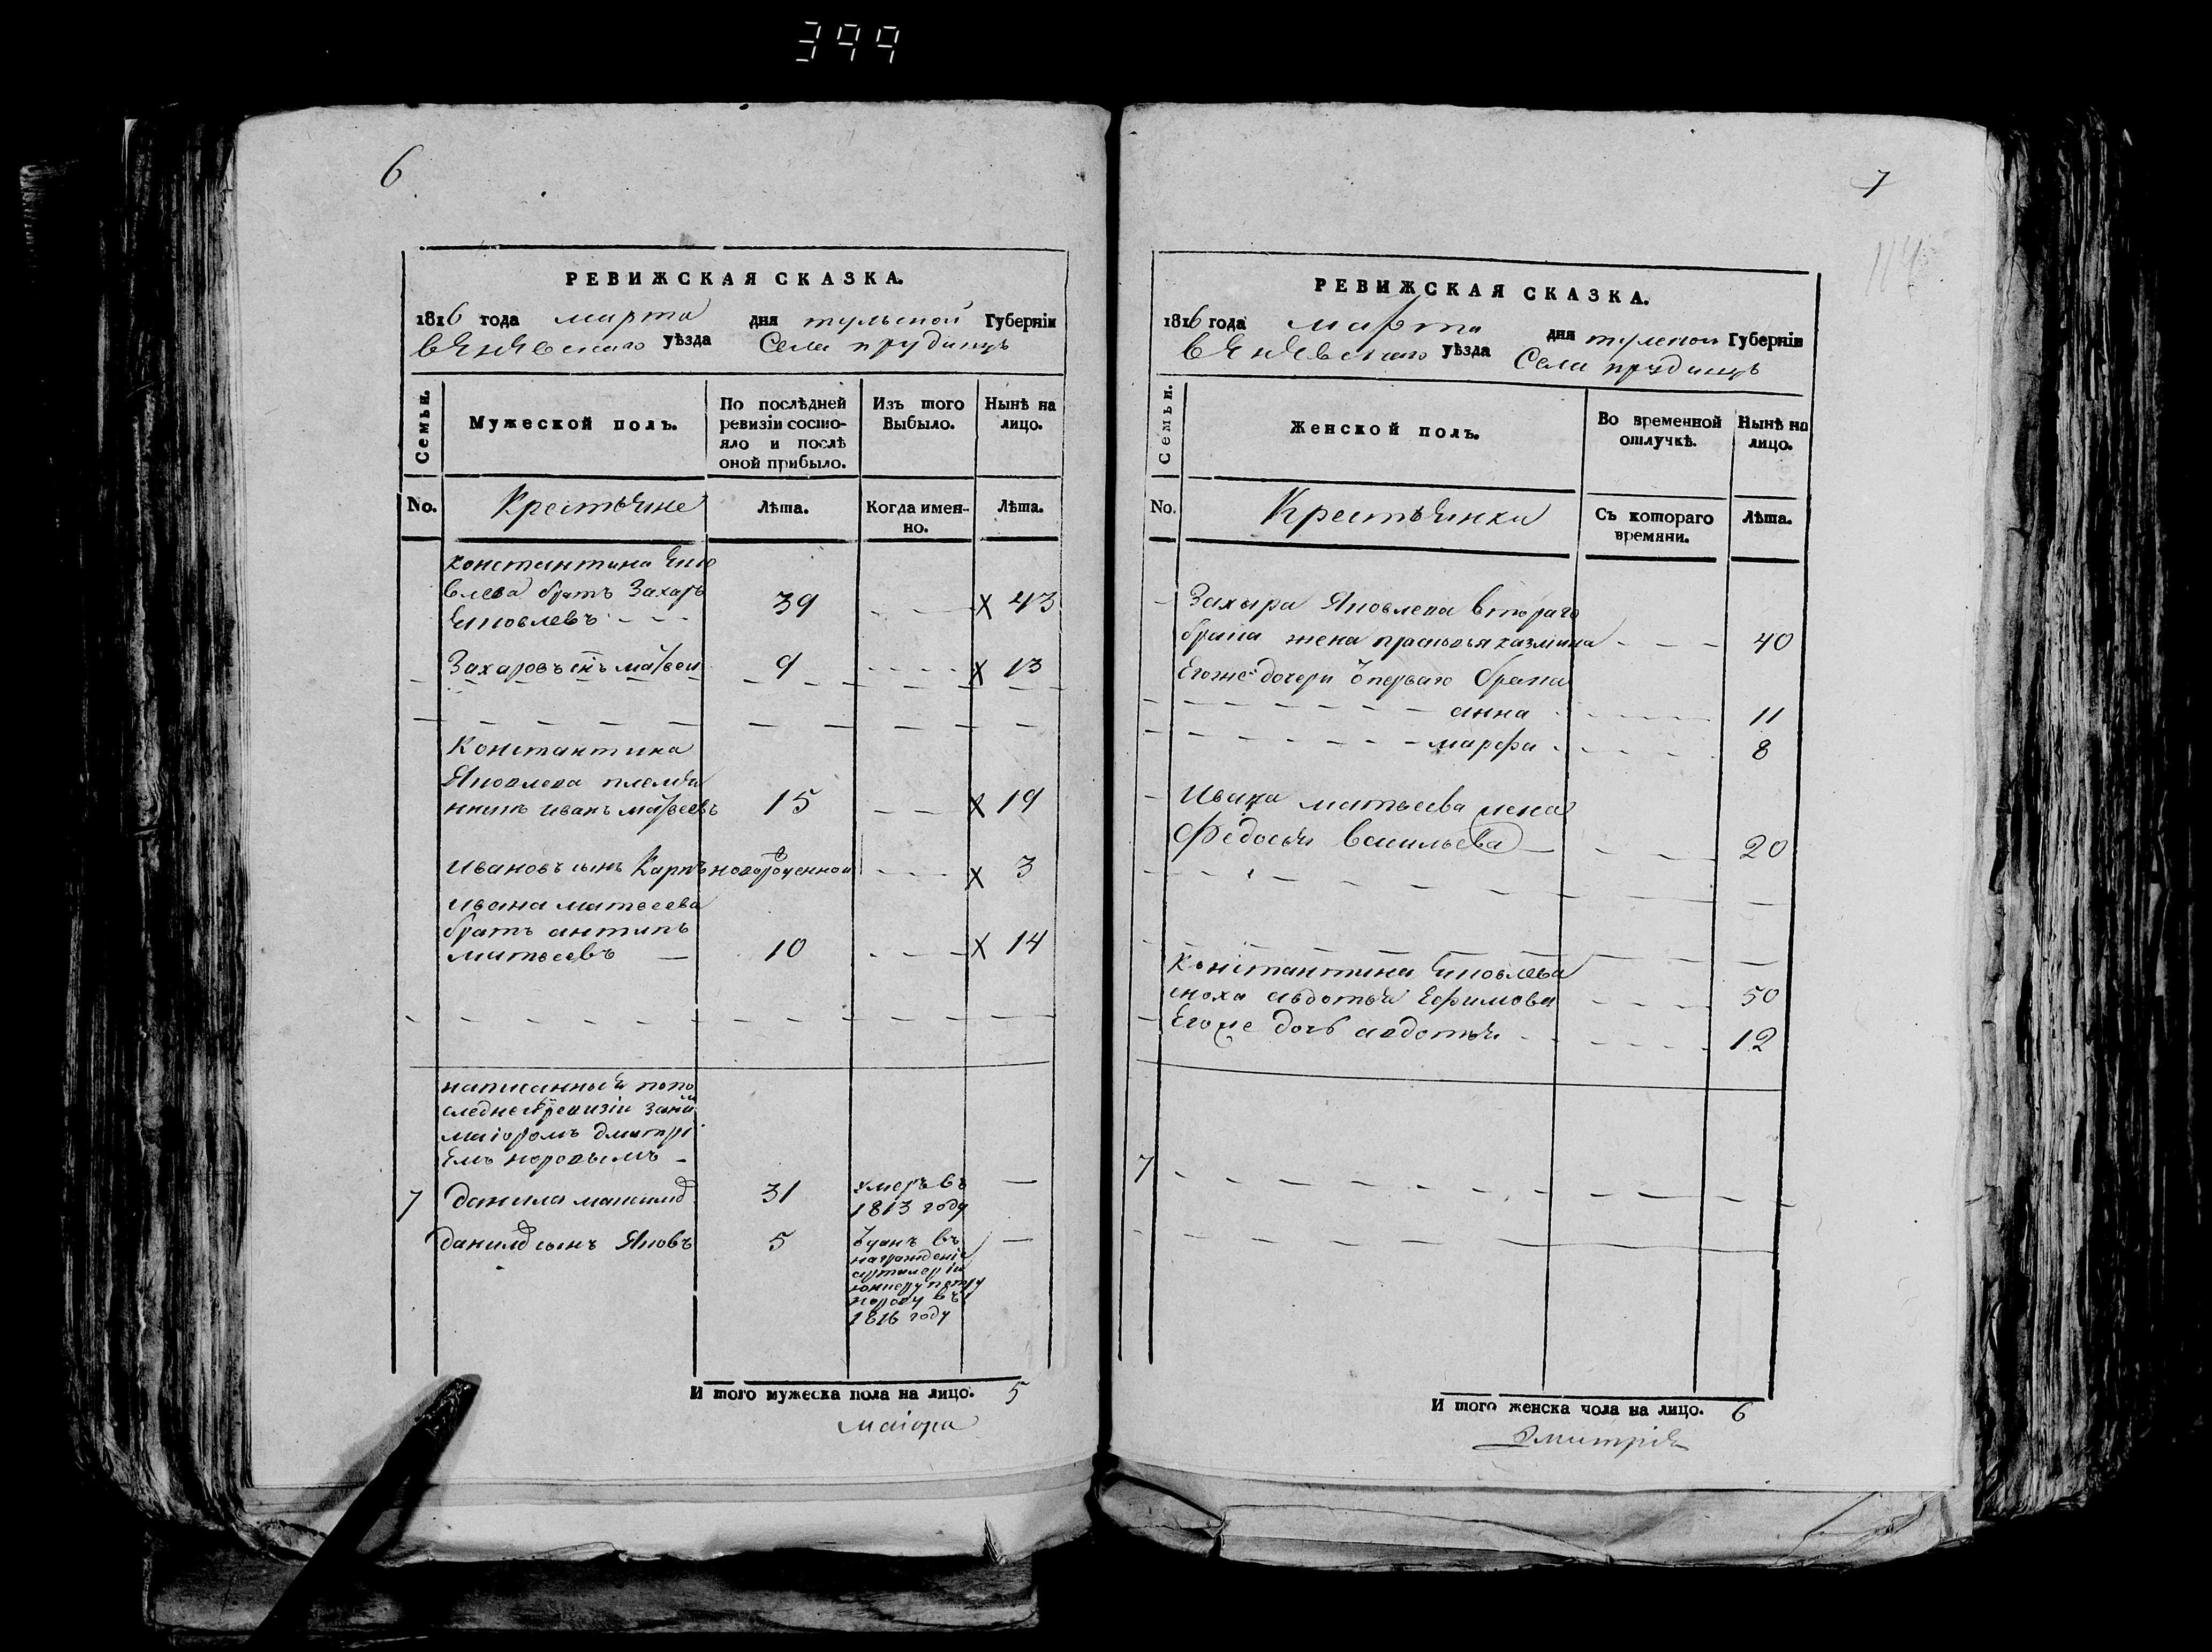 399
6
РЕВИЖСКАЯ СКАЗКА.
1816 года марта дня тульской Губерніи
венѣевскаго уѣзда Села прудищъ
Семьи.
Мужеской полъ.
По послѣдней ревизіи состо-
яло и послѣ
оной прибыло.
Изъ того
Выбыло.
Нынѣ на
лицо.
No.
Крестьяне
Лѣта.
Когда имен-
но.
Лѣта.
Константина Яко
влева братъ Захаръ
Яковлевъ 39 х 43
Захаровъ снъ матвеи 9 х 13
Константина
Яковлева племя
нникъ иванъ матвеевъ 15 х 19
ивановъ сынъ Карпъ новорожденной х 3
ивана матвеева
братъ антипъ
матвеевъ 10 х 14
написанныя попо
следней ревизіи за
маіоромъ дмитрі
емъ норовымъ
7 данила 31 умеръ въ
1813 году
сынъ Яковъ 5 въ
награжденіе
артилеріи
юнкеру петру
норову въ
1816 году
И того мужеска пола на лицо. 5
маіора
7
114
РЕВИЖСКАЯ СКАЗКА.
1816 года марта дня тулской Губерніи
венѣевскаго уѣзда Села прудищъ
Семьи.
Женской полъ.
Во временной
отлучкѣ.
Нынѣ на
лицо.
No.
Крестьянки
Съ котораго
времяни.
Лѣта.
Захара Яковлева втораго
брата жена прасковья казмина 40
Егоже дочери перваго брака
анна 11
марфа 8
Ивана матвеева жена
Федосья васильева 20
Константина Яковлева
сноха авдотья Ефимова 50
Егоже дочь авдотья 12
7
И того женска пола на лицо. 6
Дмитрія